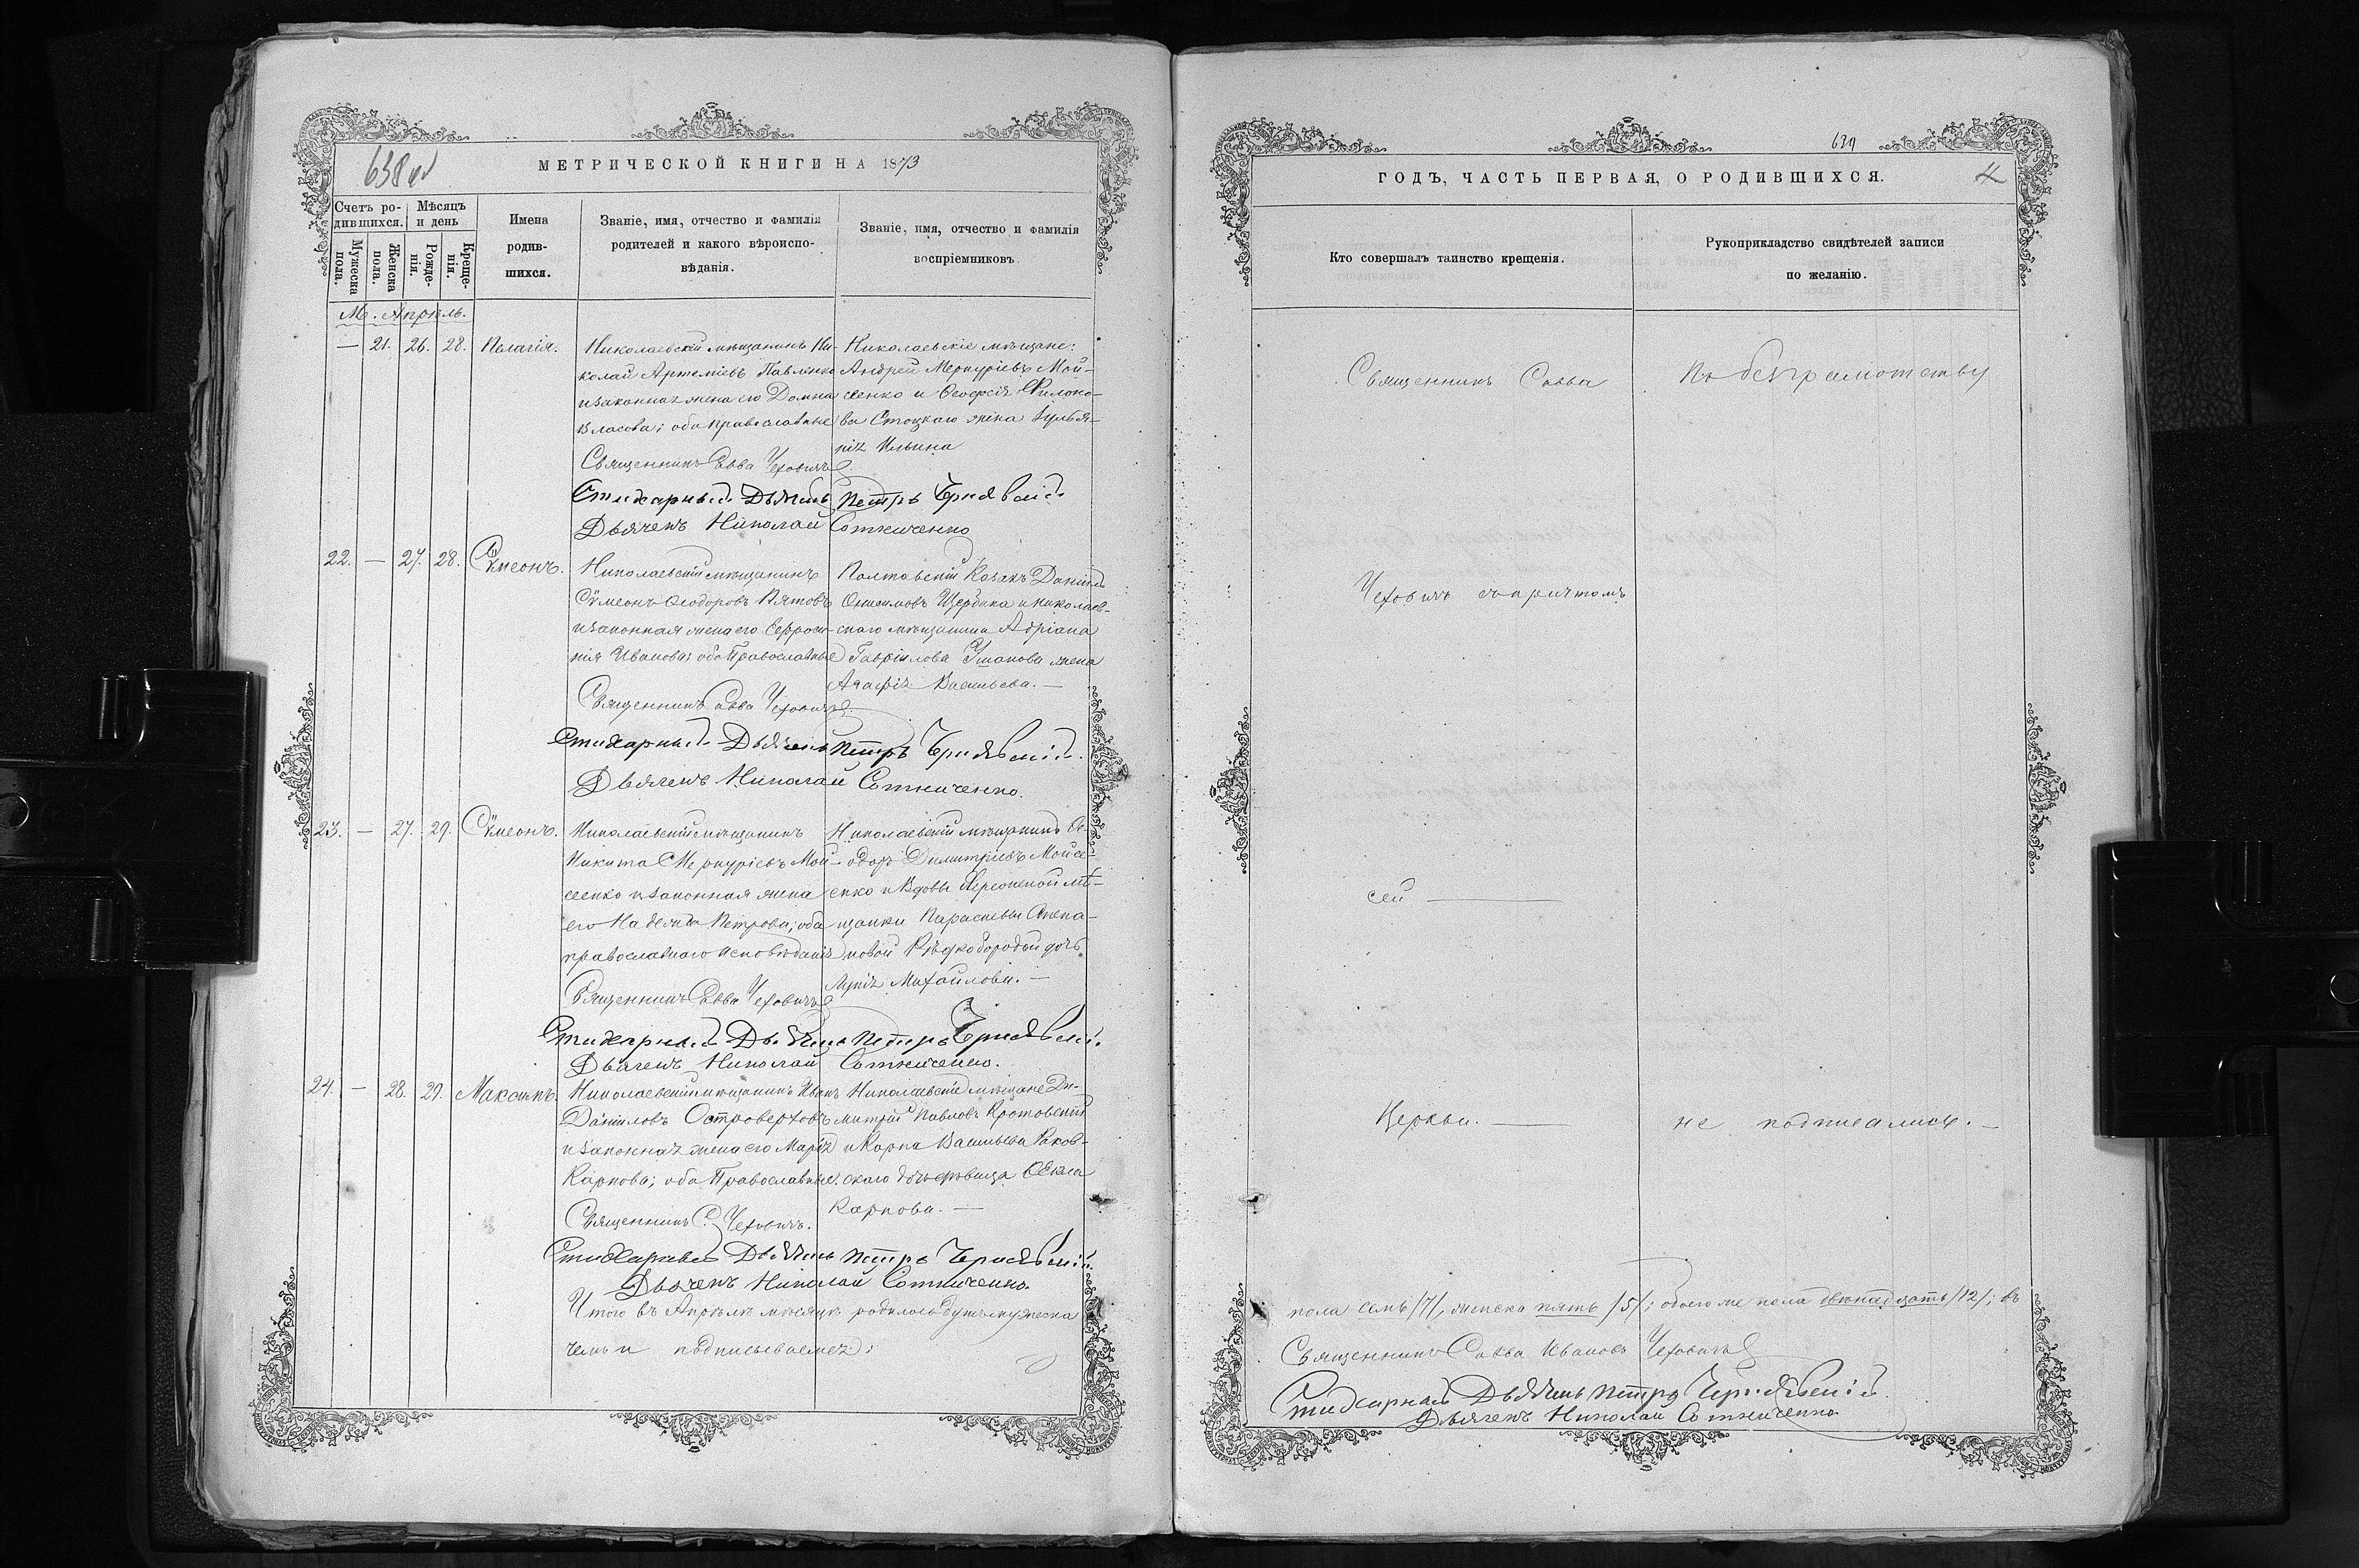 638 об
МЕТРИЧЕСКОЙ КНИГИ НА 1873
Счетъ ро-
дившихся.
Мѣсяцъ
и день
Мужеска
пола.
Женска
пола.
Рожде-
нія.
Креще-
нія.
Имена
родив-
шихся.
Званіе, имя, отчество и фамилія
родителей и какого вѣроиспо-
вѣданія.
Званіе, имя, отчество и фамилія
воспріемниковъ
М. Апрѣль.
— 21. 26. 28. Пелагія.
Николаевскій мѣщанинъ Ни-
колай Артеміевъ Павленко
и законная жена его Домна
Власова; оба православные
Николаевскіе мѣщане:
Андрей Меркуріевъ Мой-
сеенко и Филоно-
ва жена
Ильина
Священникъ Савва Чеховичъ
Стихарный Дьячекъ Петръ Чернявскій
Дьячекъ Николай Сотниченко
22. — 27. 28. Сѵмеонъ.
Николаевскій мѣщанинъ
Сѵмеонъ Ѳеодоровъ Пятовъ
и законная жена его Евфроси-
нія Иванова; оба Православные
Полтавскій Козакъ Даніилъ
Онисимовъ Щербина и николаев-
скаго мѣщанина Адріана
Гавріилова Ушакова жена
Агафія Васильева. —
Священникъ Савва Чеховичъ
Стихарный Дьячекъ Петръ Чернявскій.
Дьячекъ Николай Сотниченко.
23. — 27. 29. Сѵмеонъ.
Николаевскій мѣщанинъ
Никита Меркуріевъ Мой-
сеенко и законная жена
его Надежда Петрова; оба
православнаго исповѣданія
Николаевскій мѣщанинъ Ѳе-
одоръ Димитріевъ Мойсе-
енко и вдовы Херсонской мѣ-
щанки Параскевы Степа-
новой Рѣдкобородой дочь
Михайлова. —
Священникъ Савва Чеховичъ
Стихарный Дьячекъ Петръ Чернявскій.
Дьячекъ Николай Сотниченко.
24. — 28. 29. Максимъ.
Николаевскій мѣщанинъ Иванъ
Даніиловъ Островерховъ
и законная жена его Марія
Карпова; оба Православные.
Николаевскіе мѣщане Ди-
митрій Павловъ Кротовскій
и Карпа Васильева Раков-
скаго дочь девица Ѳекла
Карпова. —
Священникъ С. Чеховичъ.
Стихарный Дьячекъ Петръ Чернявскій.
Дьячекъ Николай Сотниченко.
Итого въ Апрѣлѣ мѣсяцѣ родилось душъ мужеска
чемъ и подписываемся:
639
4
ГОДЪ, ЧАСТЬ ПЕРВАЯ, О РОДИВШИХСЯ.
Кто совершалъ таинство крещенія.
Рукоприкладство свидѣтелей записи
по желанію.
Священникъ Савва
По безграмотству
Чеховичъ съ причтомъ
сей —
Церкви. —
не подписались. —
пола семь /7/, женска пять /5/; обоего же пола двѣнадцать /12/; въ
Священникъ Савва Ивановъ Чеховичъ
Стихарный Дьячекъ Петръ Чернявскій.
Дьячекъ Николай Сотниченко